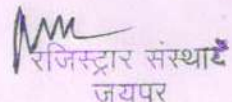 रजिस्ट्रार संस्थाएँ
जयपर